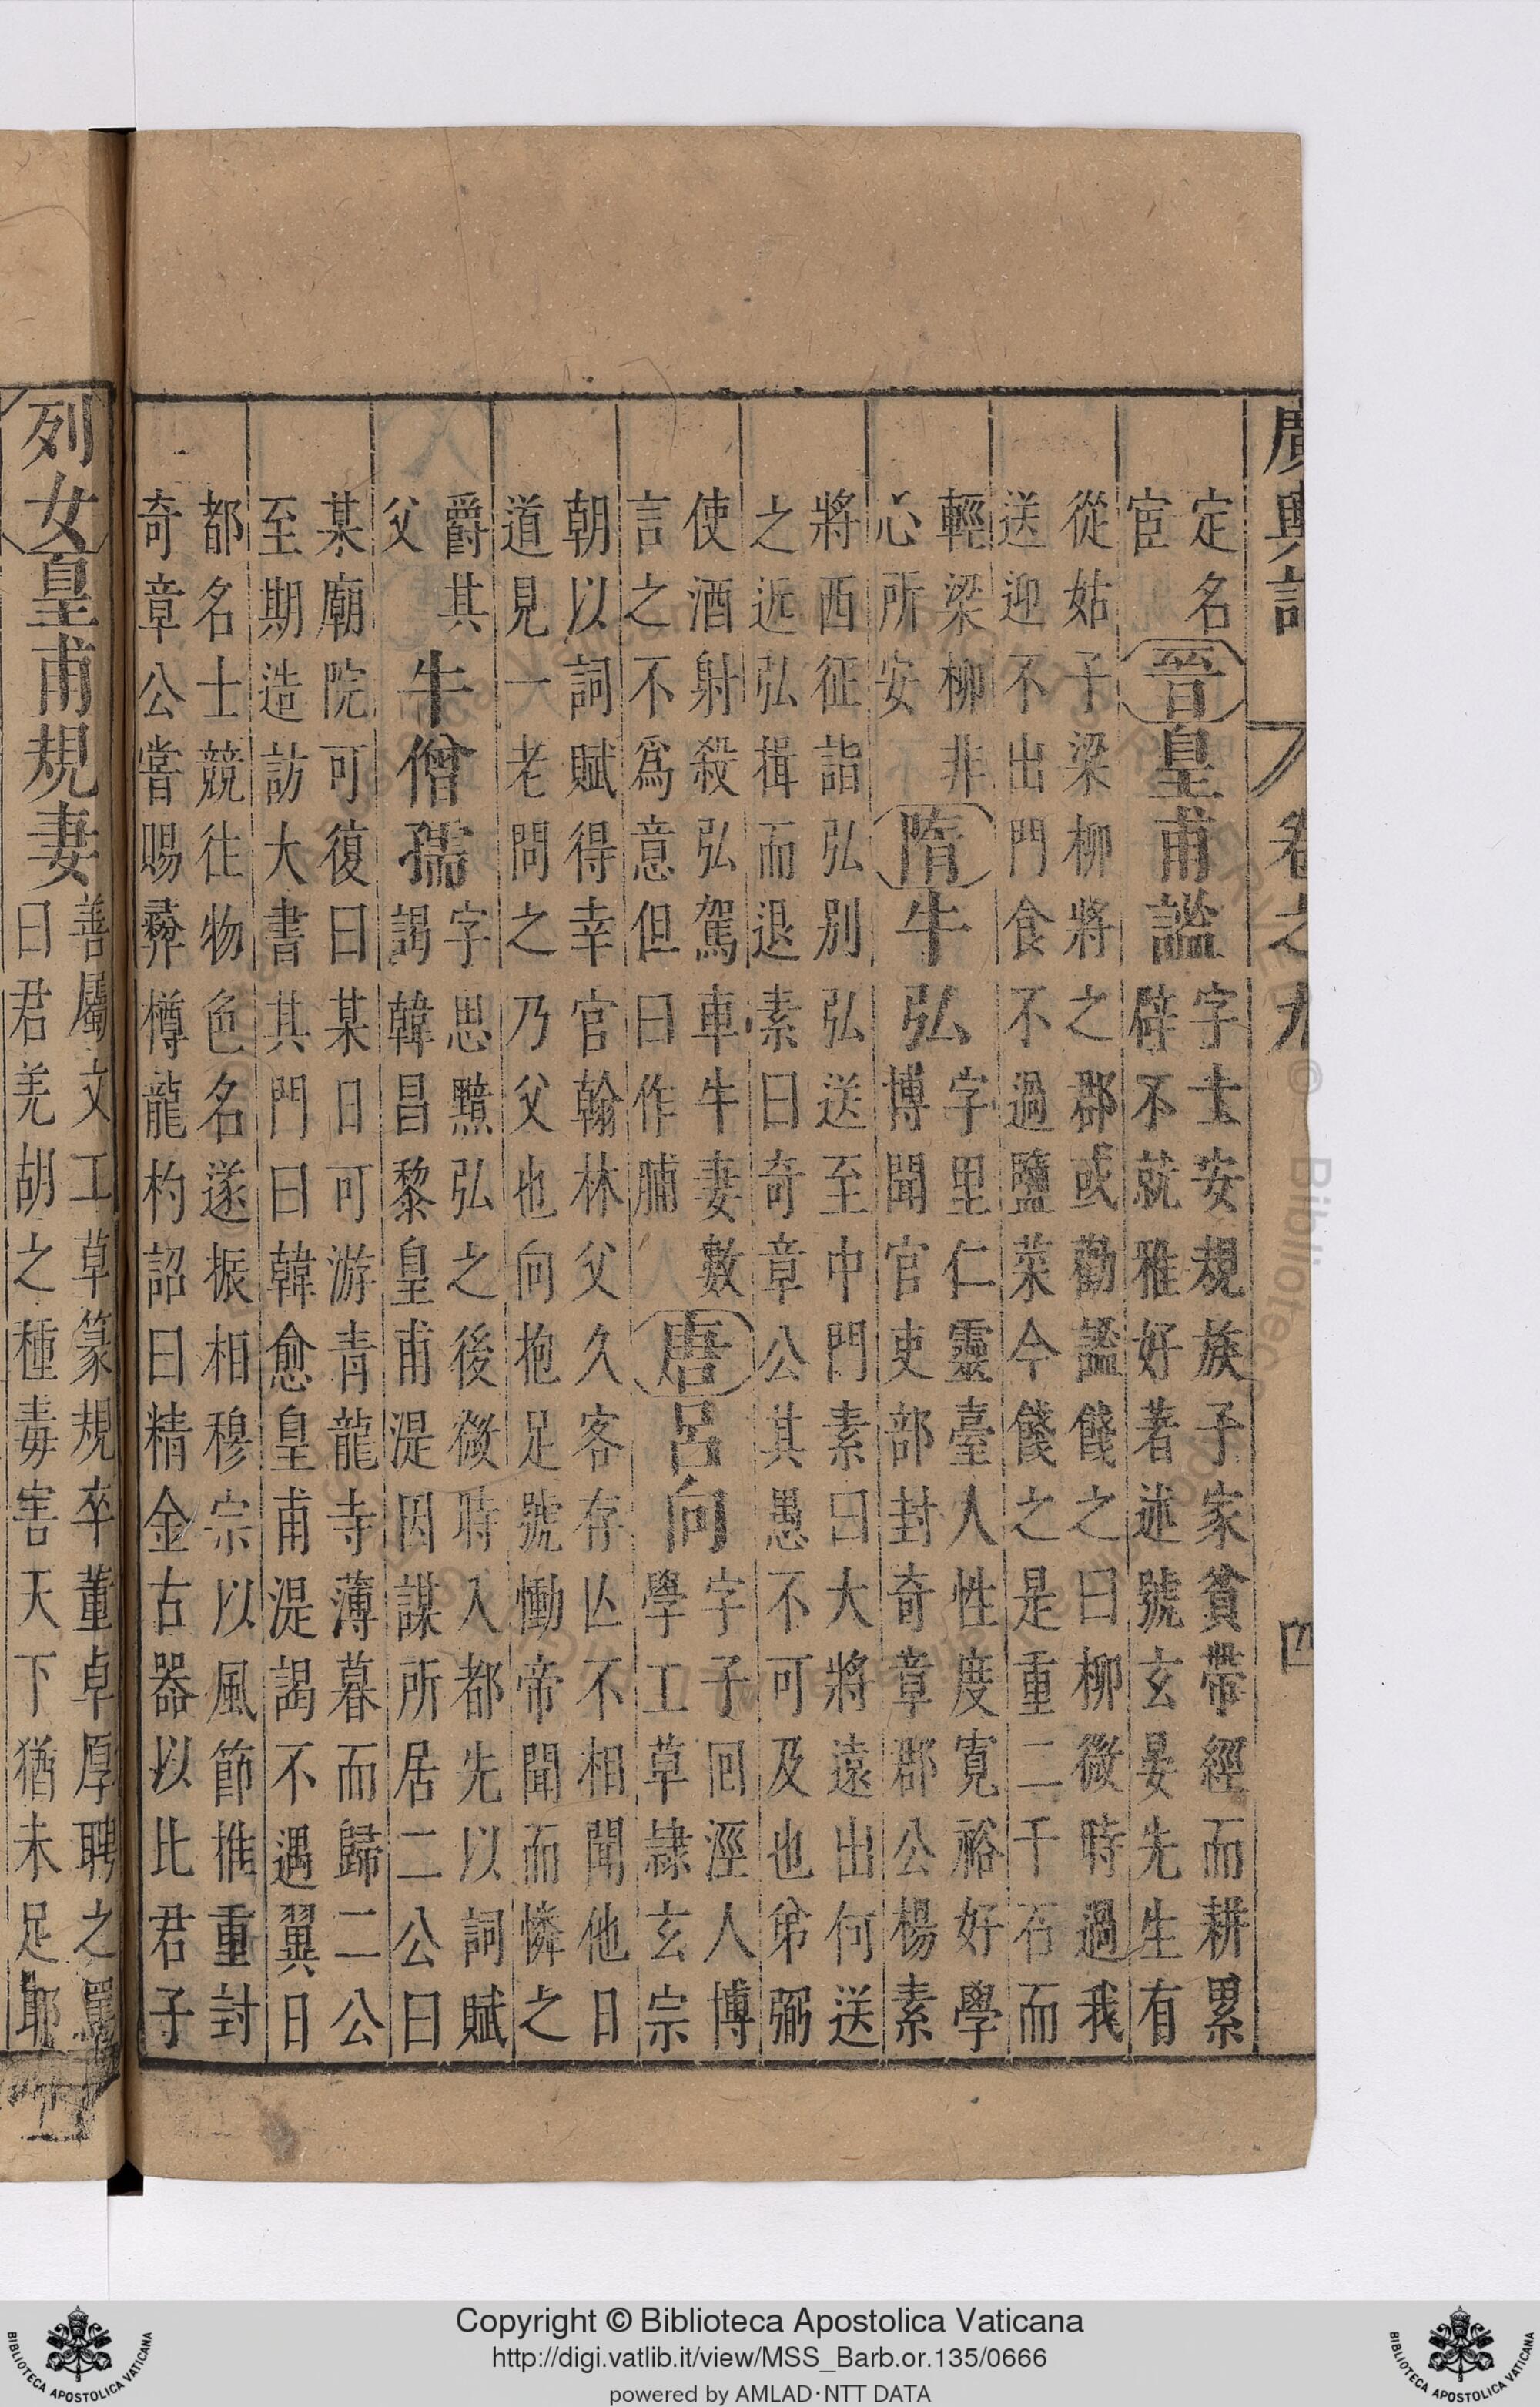 廣輿記 卷之九 四
定名
宦
晉 皇甫謐
字士安規族子家貧帶經而耕累
辟不就雅好著述號玄晏先生有
從姑子梁柳將之郡或勸謐餞之曰柳微時過我
送迎不出門食不過鹽菜今餞之是重二千石而
輕梁柳非
心所安
隋 牛弘
字里仁靈臺人性度寬裕好學
博聞官吏部封奇章郡公楊素
將西征詣弘別弘送至中門素曰大將遠出何送
之近弘揖而退素曰奇章公其愚不可及也弟弼
使酒射殺弘駕車牛妻數
言之不爲意但曰作脯
唐 呂向
字子回涇人博
學工草隸玄宗
朝以詞賦得幸官翰林父久客存亾不相聞他日
道見一老問之乃父也向抱足號慟帝聞而憐之
爵其
父
牛僧孺
字思黯弘之後微時入都先以詞賦
謁韓昌黎皇甫湜因謀所居二公曰
某廟院可復曰某日可游青龍寺薄暮而歸二公
至期造訪大書其門曰韓愈皇甫湜謁不遇翼日
都名士競往物色名遂振相穆宗以風節推重封
奇章公嘗賜彝樽龍杓詔曰精金古器以比君子
列女 皇甫規妻
善屬文工草篆規卒董卓厚聘之罵
曰君羌胡之種毒害天下猶未足耶
Copyright © Biblioteca Apostolica Vaticana
http://digi.vatlib.it/view/MSS_Barb.or.135/0666
powered by AMLAD·NTT DATA
BIBLIOTECA APOSTOLICA VATICANA
BIBLIOTECA APOSTOLICA VATICANA